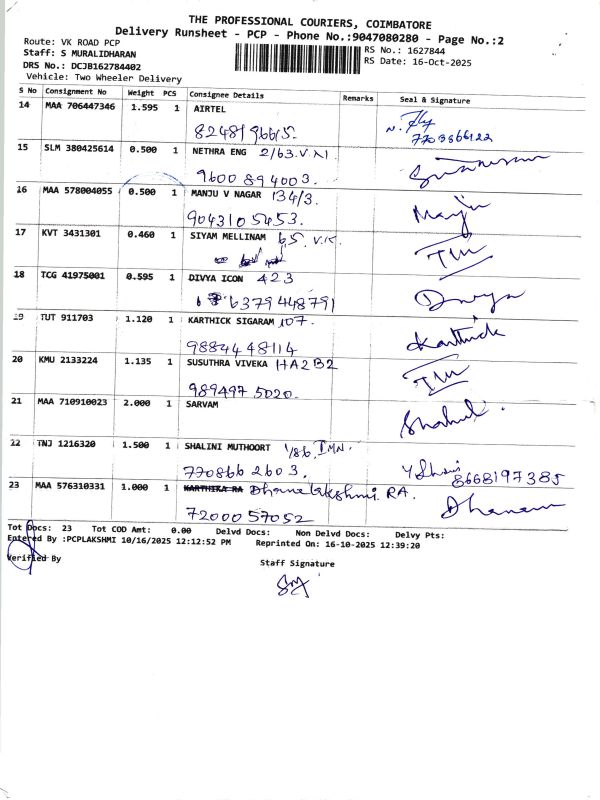 THE PROFESSIONAL COURIERS, COIMBATORE
Delivery Runsheet - PCP - Phone No.:9047080280 - Page No.:2
Route: VK ROAD PCP
RS No.: 1627844
Staff: S MURALIDHARAN
RS Date: 16-Oct-2025
DRS No.: DCJB162784402
Vehicle: Two Wheeler Delivery
S No Consignment No Weight PCS Consignee Details Remarks Seal & Signature
14 MAA 706447346 1.595 1 AIRTEL
7703866122
15 SLM 380425614 0.500 1 NETHRA ENG 2/63.V.N1.
9600 894003.
16 MAA 578004055 0.500 1 MANJU V NAGAR 134/3. Manju
9043105453.
17 KVT 3431301 0.460 1 SIYAM MELLINAM 65. V.K.
18 TCG 41975001 0.595 1 DIVYA ICON 423 Divya
6379448791
19 TUT 911703 1.120 1 KARTHICK SIGARAM 107. Karthick
9884448114
20 KMU 2133224 1.135 1 SUSUTHRA VIVEKA HA2B2
989497 5020.
21 MAA 710910023 2.000 1 SARVAM Shahul.
22 TNJ 1216320 1.500 1 SHALINI MUTHOORT 1/86, TMN.
770866 2603. 8668197385
23 MAA 576310331 1.000 1 KARTHIKA RA Dhanalakshmi. RA.
7200057052
Tot Docs: 23 Tot COD Amt: 0.00 Delvd Docs: Non Delvd Docs: Delvy Pts:
Entered By :PCPLAKSHMI 10/16/2025 12:12:52 PM Reprinted On: 16-10-2025 12:39:20
Verified By
Staff Signature